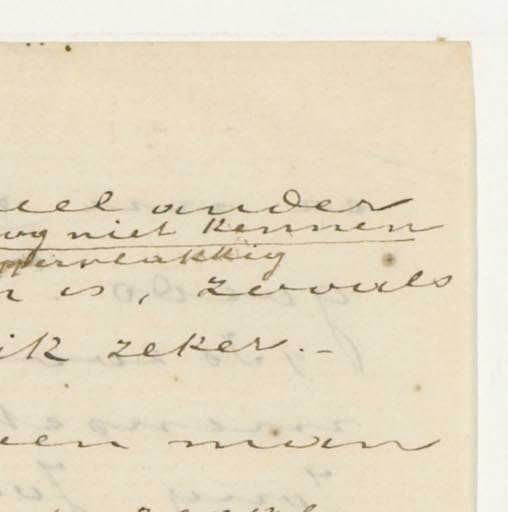 ander
nog niet kennen
oppervlakkig
is, zooals
ik zeker. –
een man